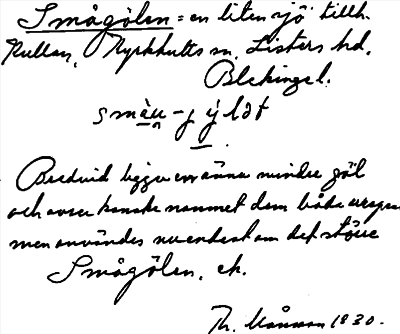 Smågölen = en liten sjö tillh.
Kullan, Kyrkhults sn, Listers hd,
Blekinge l.
smȧu̯ - j ÿ l ə t
Bredvid ligger en ännu mindre göl
och avser kanske namnet dem båda
men användes nu endast om det större
Smågölen, ek.
Th. Månsson 1930.